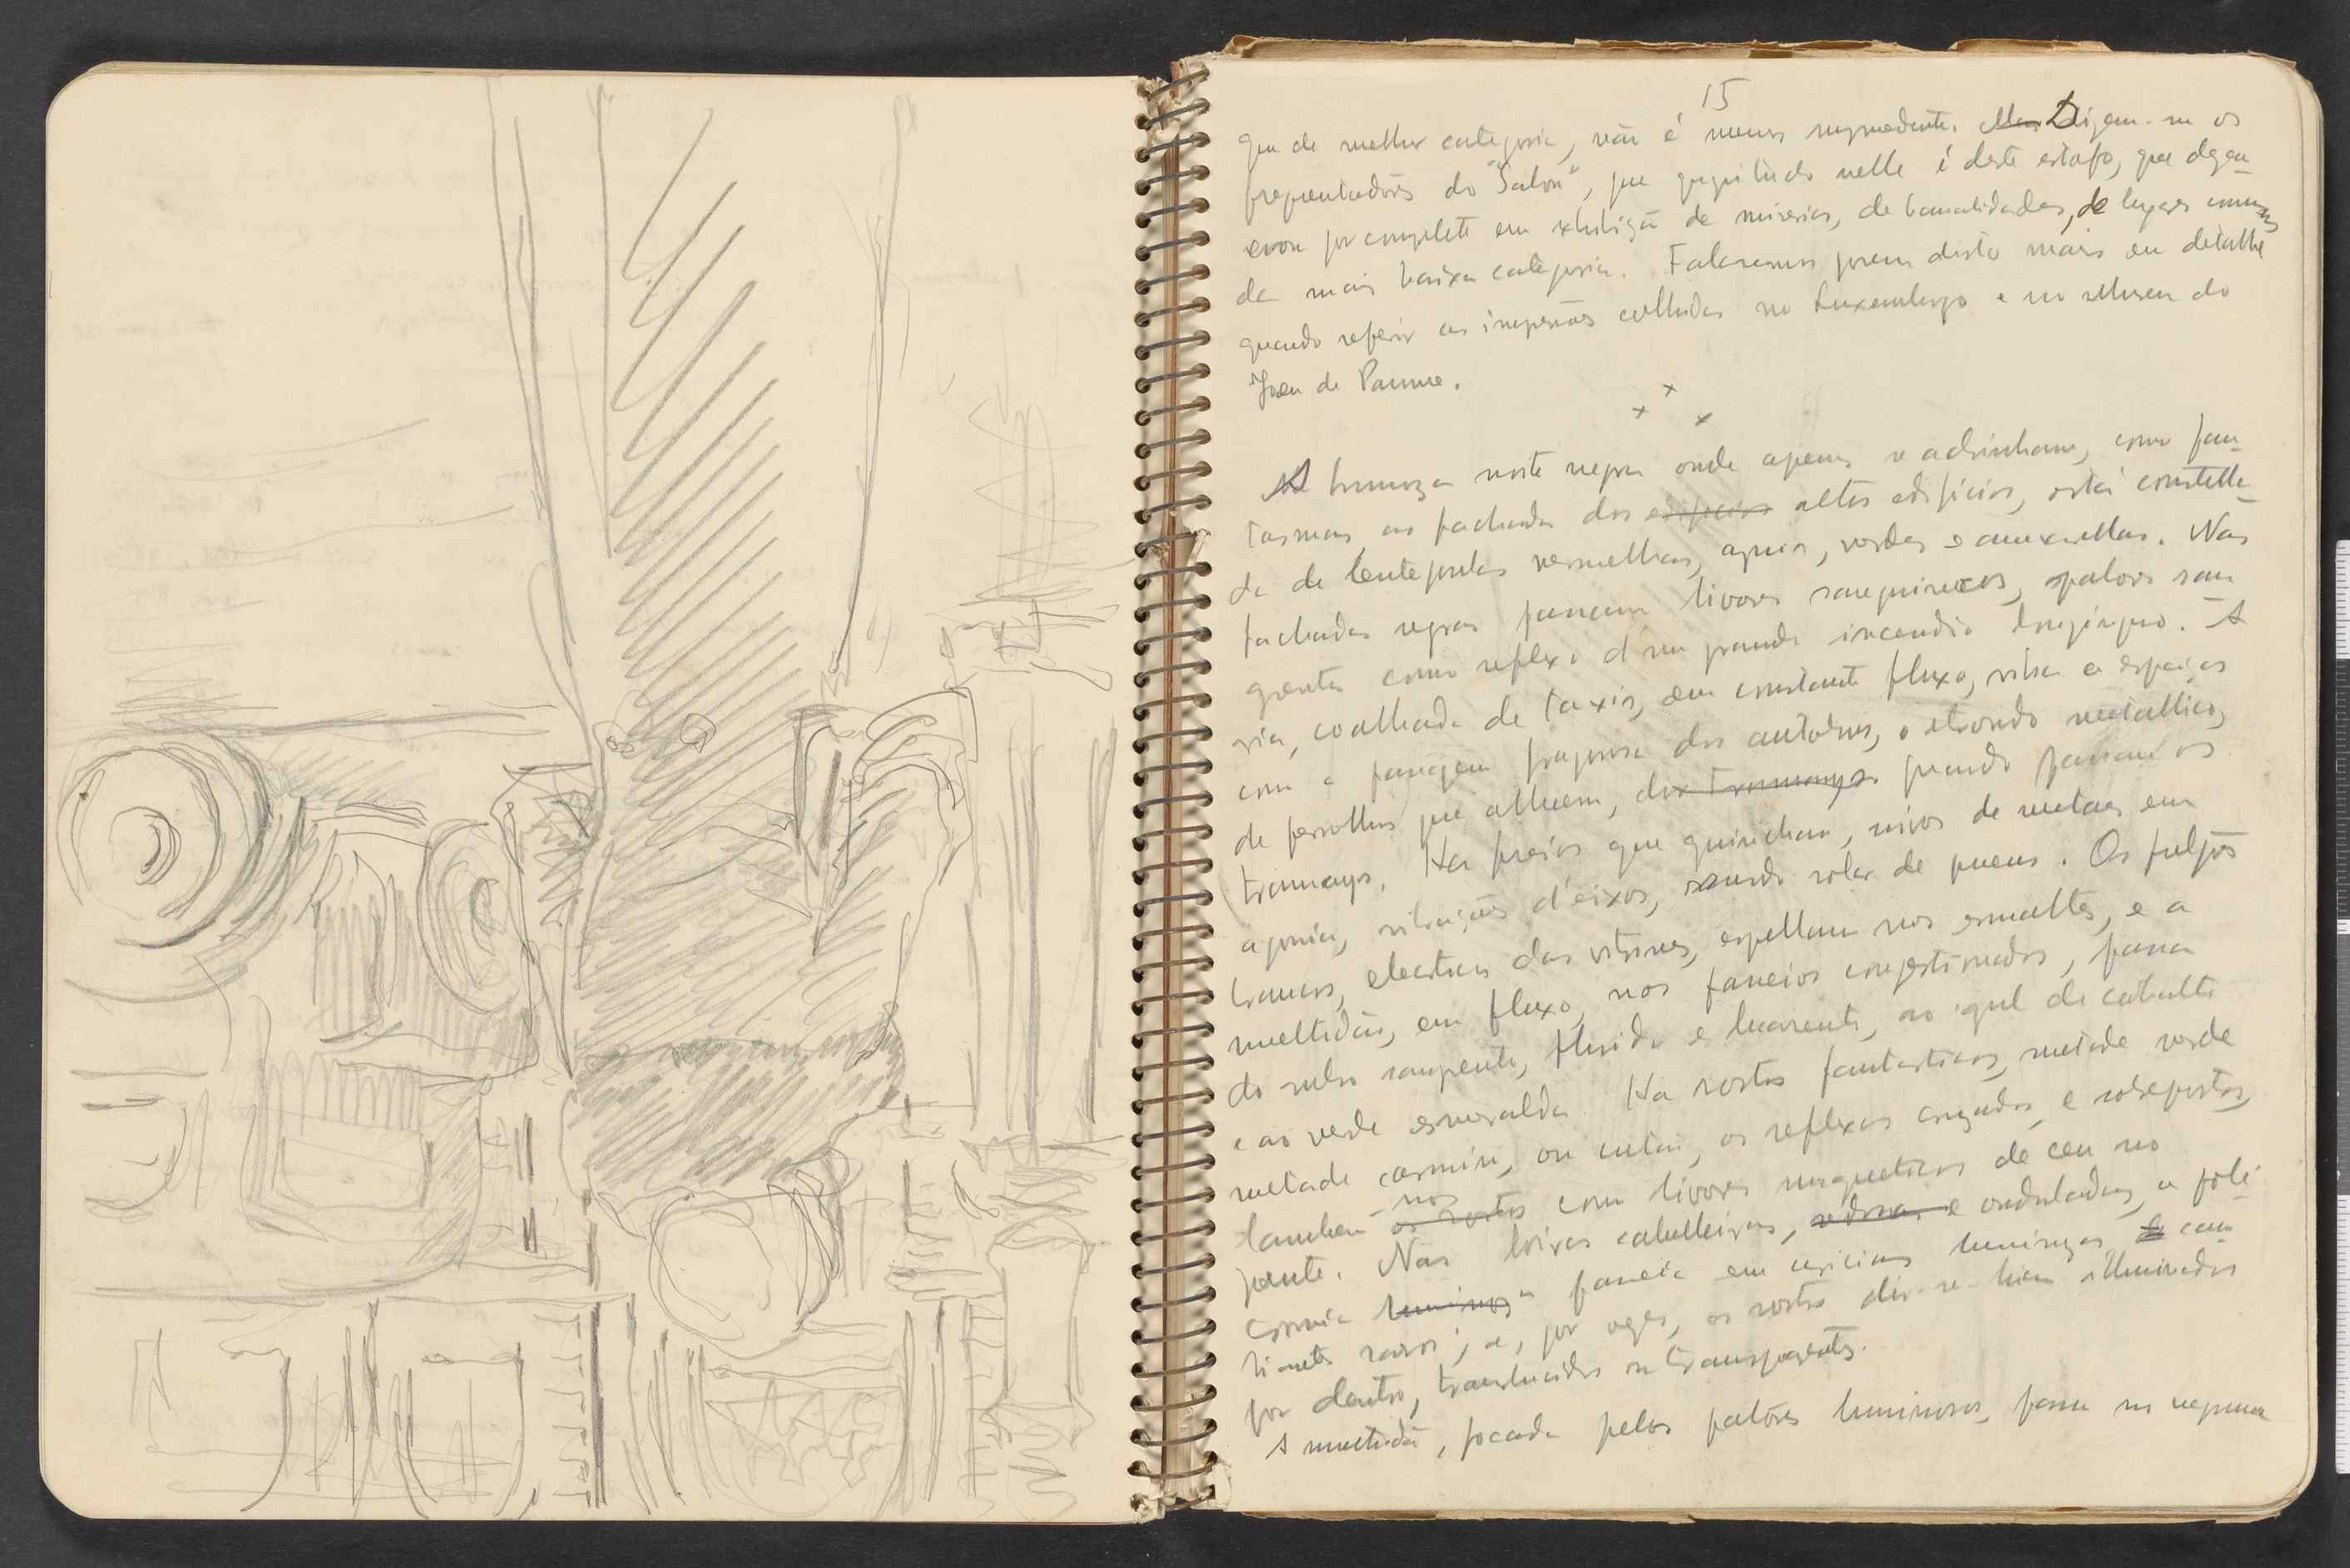 15
que de melhor categoria, não é menos surprehendente. Mas Digam-me os
frequentadores do "Salon", que quasi tudo nelle é deste estofo, que degen-
erou por completo em exhibição de miserias, de banalidades, de lugares communs
da mais baixa categoria. Falaremos porem disto mais em detalhe
quando referir as impressões colhidas no Luxemburgo e no Museu do
Jeu de Paume.
x x x
A luminosa noite negra onde apenas se adivinham, como fan-
tasmas as fachadas dos altos edificios, está constella-
da de lentejoulas vermelhas, azues, verdes e amarellas. Nas
fachadas negras passam livores sanguineos, palores san-
grentos como reflexo d'um grande incendio longinquo. A
via, coalhada de taxis, em constante fluxo, vibra a espaços
com a passagem fragorosa dos autobus, o estrondo metallico,
de ferrolhos que alluem, dos tramways quando passam os
tramways. Ha freios que guincham, uivos de metaes em
agonia, vibrações d'eixos, surdo rolar de pneus. Os fulgôres
brancos, electricos das vitrines, espelham nos esmaltes, e a
multidão, em fluxo, nos passeios congestionados, passa
do rubro sangrento, fluido e luarento, ao azul de cobalto
e ao verde esmeralda. Ha rostos fantasticos, metade verde
metade carmin, ou então, os reflexos cruzados, e sobrepostos,
tambem nos os rostos com livores magneticos de ceu no
poente. Nas loiras cabelleiras, e onduladas, a poli-
cromia luminosa passeia em caricias luminosas e cam-
biantes raros; e, por vezes, os rostos dir-se-hiam illuminados
por dentro, translucidos ou transparentes.
A multidão, focada pelos palôres luminosos, passa na